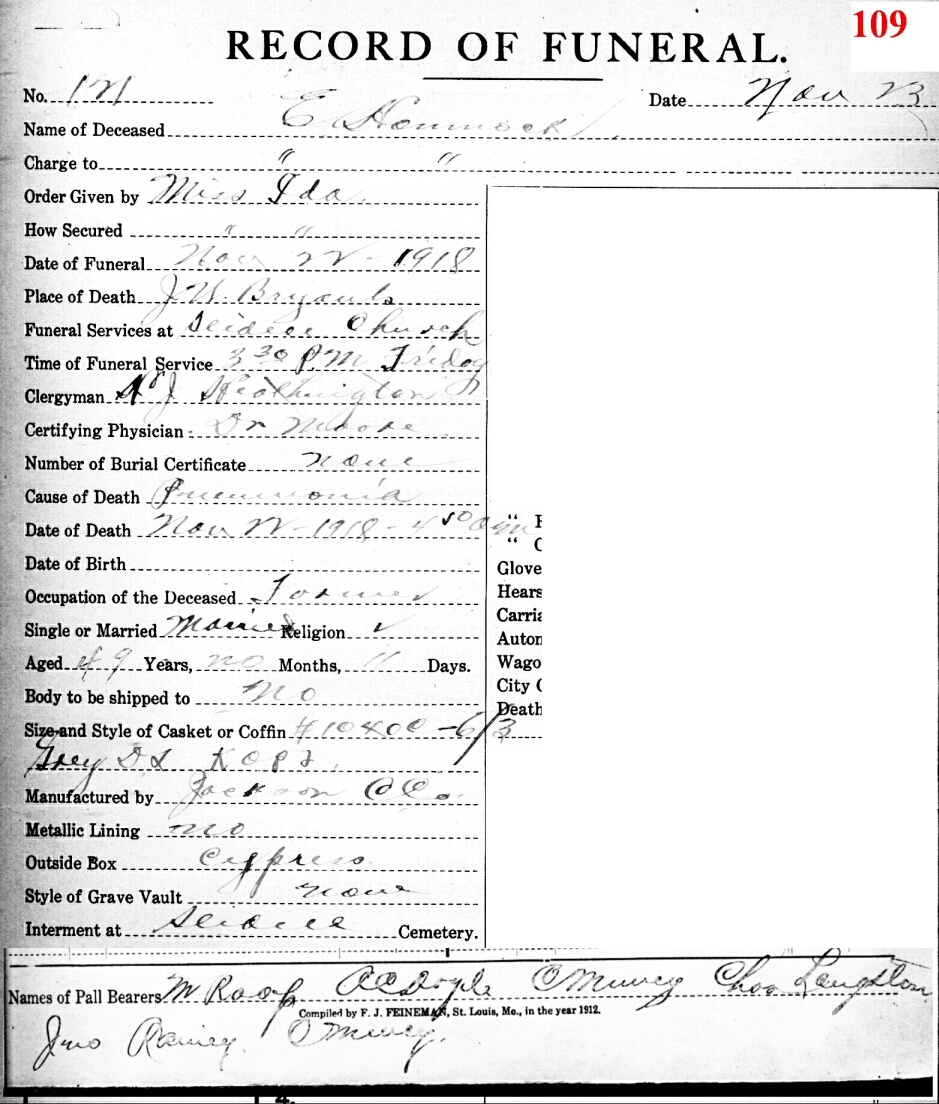 109
RECORD OF FUNERAL.
No. 121 Date Nov 23
Name of Deceased E Hammock
Charge to " "
Order Given by Miss Ida
How Secured " "
Date of Funeral Nov 22 - 1918
Place of Death J W. Bryants
Funeral Services at Church
Time of Funeral Service 3 30 P.M Friday
Clergyman
Certifying Physician Dr Moore
Number of Burial Certificate none
Cause of Death Pneumonia
Date of Death Nov 22 - 1918 - 4 50 am
Date of Birth
Occupation of the Deceased Farmer
Single or Married Married Religion ✓
Aged 49 Years, no Months, 11 Days.
Body to be shipped to No
Size and Style of Casket or Coffin #10400 - 6/3
Grey
Manufactured by Jackson C Co.
Metallic Lining no
Outside Box Cypress
Style of Grave Vault none
Interment at Cemetery.
" F
" C
Glove
Hears
Carria
Autom
Wago
City C
Death
Names of Pall Bearers M Roof A C Doyle O Muncy Chas Langston
Compiled by F. J. FEINEMAN, St. Louis, Mo., in the year 1912.
Jno Rainey O Muncy.
4.